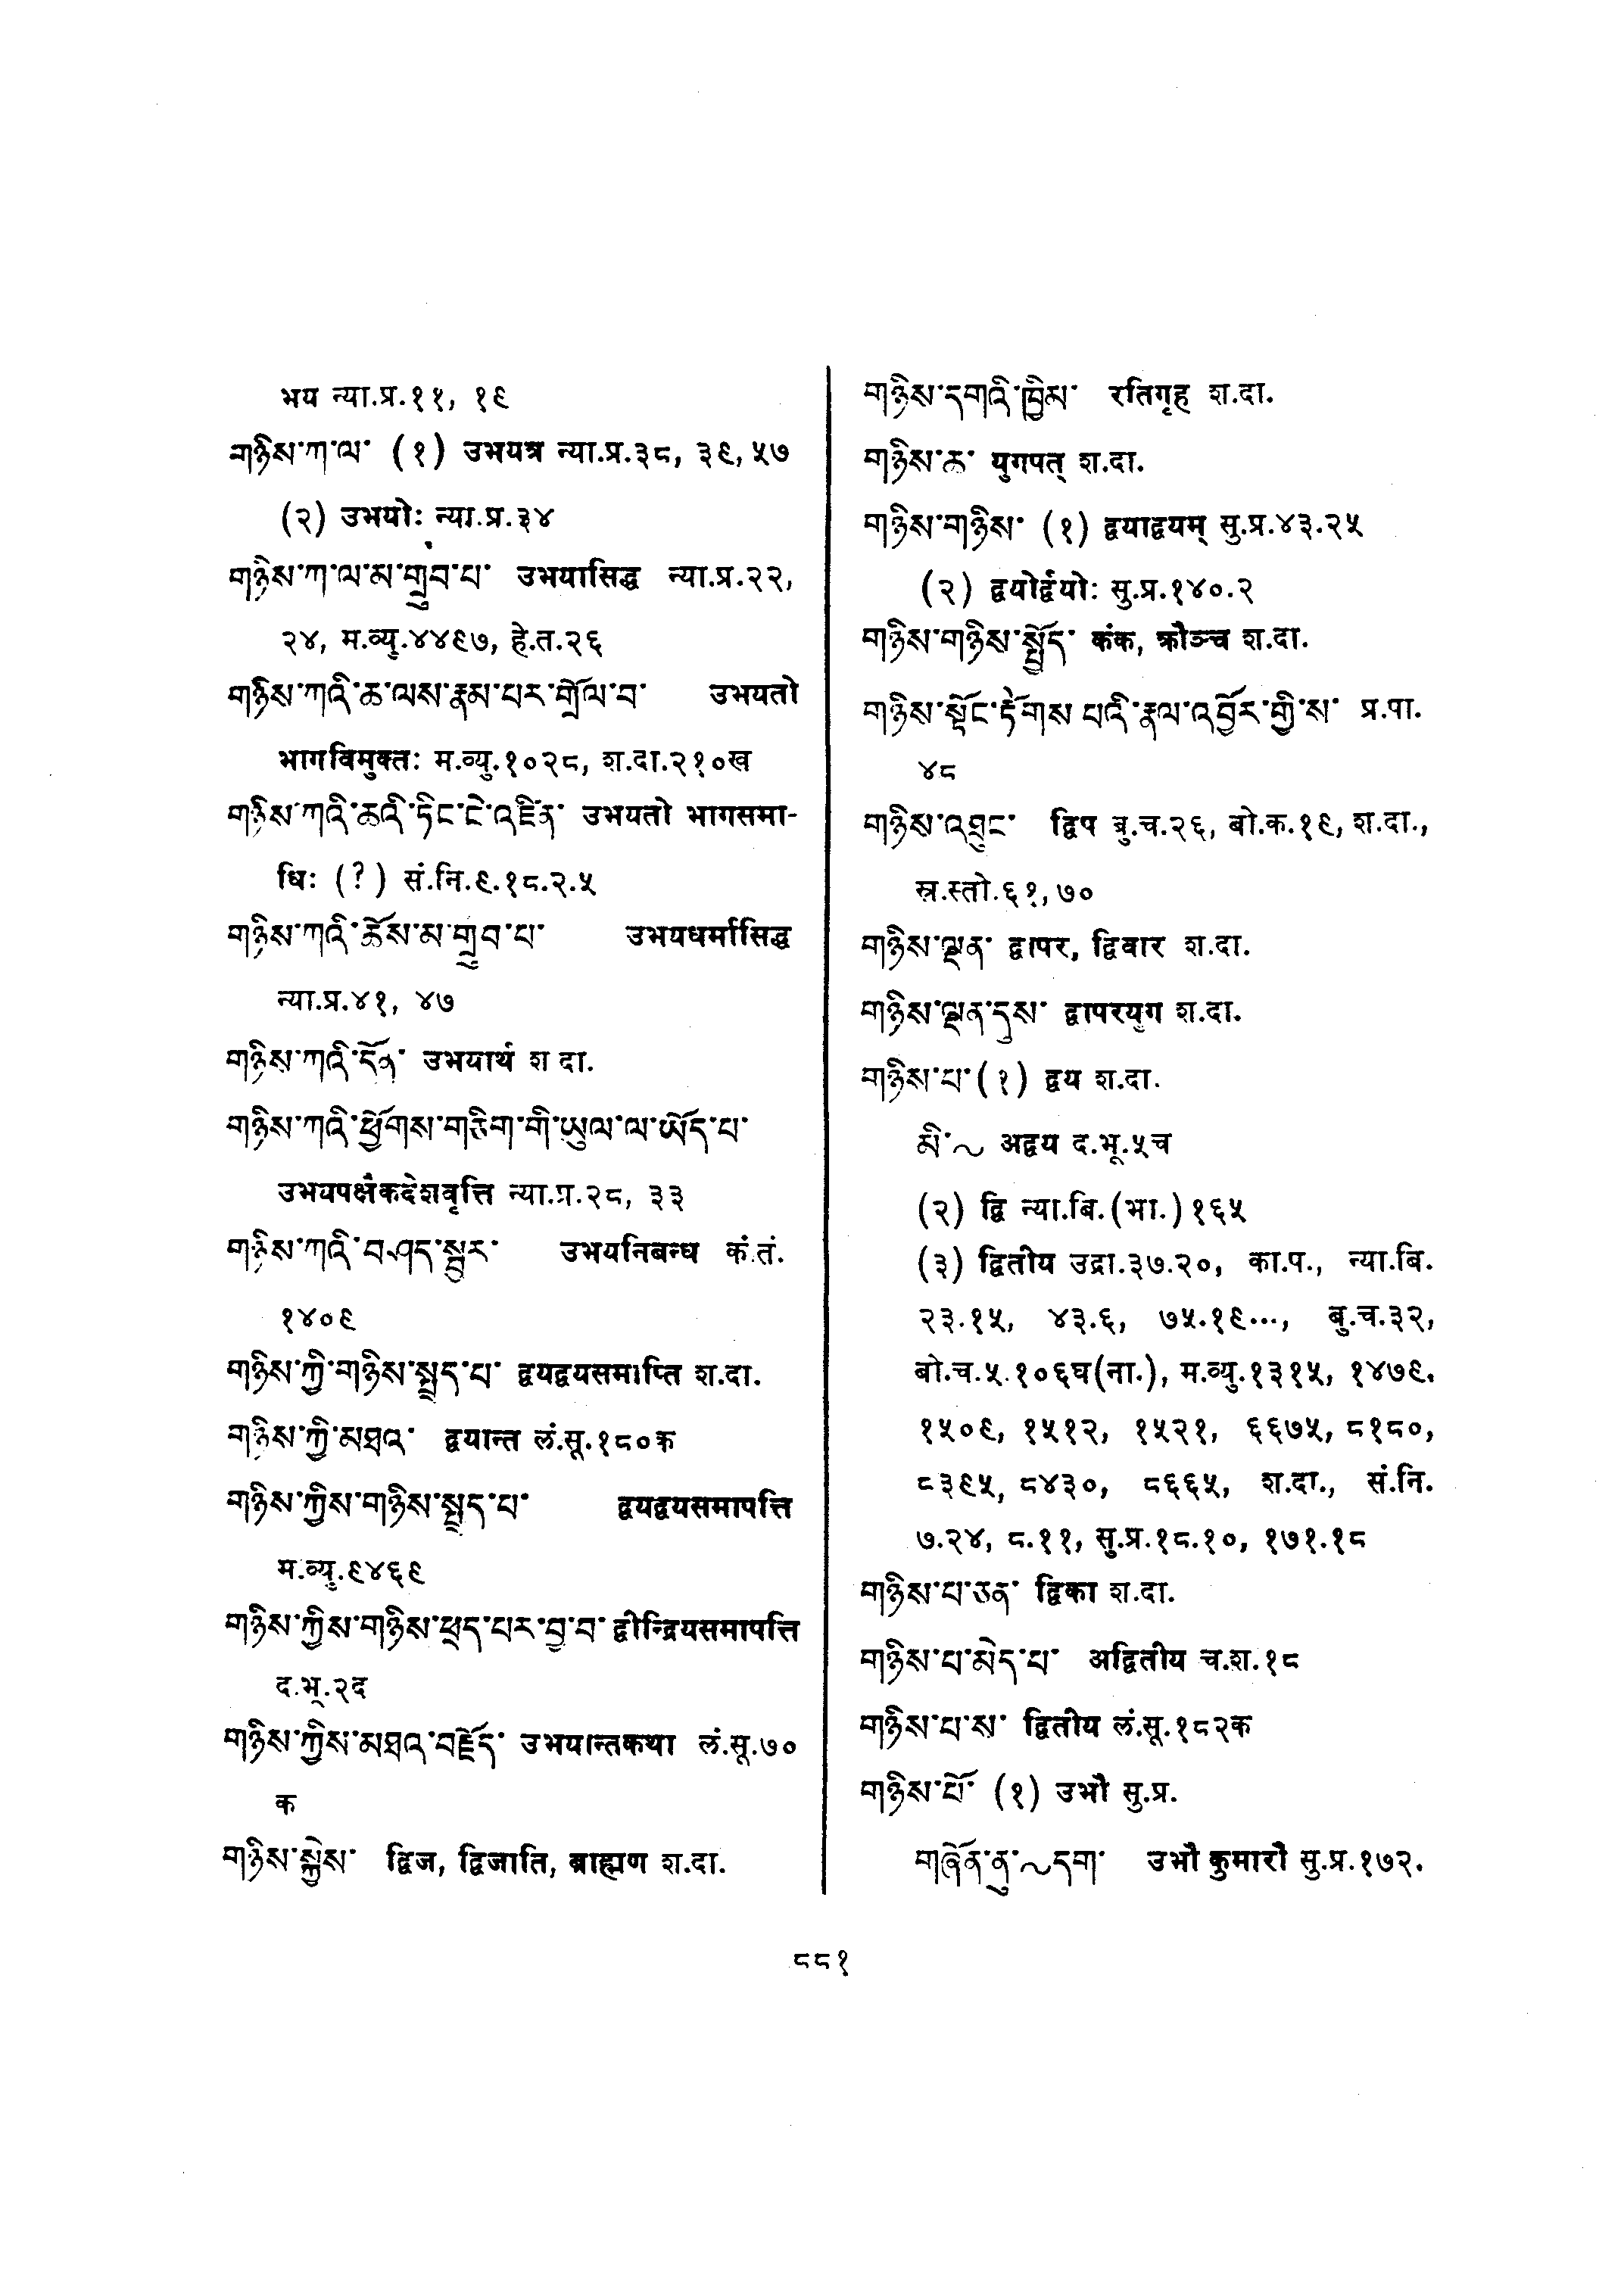 भय न्या.प्र.११, १९
གཉིས་ཀ་ལ་ (१) उभयत्र न्या.प्र.३८, ३९, ५७
(२) उभयोः न्या.प्र.३४
གཉིས་ཀ་ལ་མ་གྲུབ་པ་ उभयासिद्ध न्या.प्र.२२,
२४, म.व्यु.४४९७, हे.त.२६
གཉིས་ཀའི་ཆ་ལས་རྣམ་པར་གྲོལ་བ་ उभयतो
भागविमुक्तः म.व्यु.१०२८, श.दा.२१०ख
གཉིས་ཀའི་ཆའི་ཏིང་ངེ་འཛིན་ उभयतो भागसमा-
धिः (?) सं.नि.९.१८.२.५
གཉིས་ཀའི་ཆོས་མ་གྲུབ་པ་ उभयधर्मासिद्ध
न्या.प्र.४१, ४७
གཉིས་ཀའི་དོན་ उभयार्थ श दा.
གཉིས་ཀའི་ཕྱོགས་གཅིག་གི་ཡུལ་ལ་ཡོད་པ་
उभयपक्षैकदेशवृत्ति न्या.प्र.२८, ३३
གཉིས་ཀའི་བཤད་སྦྱར་ उभयनिबन्ध कं.तं.
१४०९
གཉིས་ཀྱི་གཉིས་སྤྲད་པ་ द्वयद्वयसमाप्ति श.दा.
གཉིས་ཀྱི་མཐའ་ द्वयान्त लं.सू.१८०क
གཉིས་ཀྱིས་གཉིས་སྤྲད་པ་ द्वयद्वयसमापत्ति
म.व्यु.९४६९
གཉིས་ཀྱིས་གཉིས་ཕྲད་པར་བྱ་བ་ द्वीन्द्रियसमापत्ति
द.भू.२द
གཉིས་ཀྱིས་མཐའ་བརྗོད་ उभयान्तकथा लं.सू.७०
क
གཉིས་སྐྱེས་ द्विज, द्विजाति, ब्राह्मण श.दा.
གཉིས་དགའི་ཁྱིམ་ रतिगृह श.दा.
གཉིས་ཆ་ युगपत् श.दा.
གཉིས་གཉིས་ (१) द्वयाद्वयम् सु.प्र.४३.२५
(२) द्वयोर्द्वयोः सु.प्र.१४०.२
གཉིས་གཉིས་སྤྱོད་ कंक, क्रौञ्च श.दा.
གཉིས་སྟོང་རྟོགས་པའི་རྣལ་འབྱོར་གྱི་ས་ प्र.पा.
४८
གཉིས་འཐུང་ द्विप बु.च.२६, बो.क.१९, श.दा.,
स्र.स्तो.६१, ७०
གཉིས་ལྡན་ द्वापर, द्विवार श.दा.
གཉིས་ལྡན་དུས་ द्वापरयुग श.दा.
གཉིས་པ་ (१) द्वय श.दा.
མི་~ अद्वय द.भू.५च
(२) द्वि न्या.बि.(भा.)१६५
(३) द्वितीय उद्रा.३७.२०, का.प., न्या.बि.
२३.१५, ४३.६, ७५.१९..., बु.च.३२,
बो.च.५.१०६घ(ना.), म.व्यु.१३१५, १४७९,
१५०९, १५१२, १५२१, ६६७५, ८१८०,
८३९५, ८४३०, ८६६५, श.दा., सं.नि.
७.२४, ८.११, सु.प्र.१८.१०, १७१.१८
གཉིས་པ་ཅན་ द्विका श.दा.
གཉིས་པ་མེད་པ་ अद्वितीय च.श.१८
གཉིས་པ་ས་ द्वितीय लं.सू.१८२क
གཉིས་པོ་ (१) उभौ सु.प्र.
གཞོན་ནུ་~དག་ उभौ कुमारौ सु.प्र.१७२.
८८१